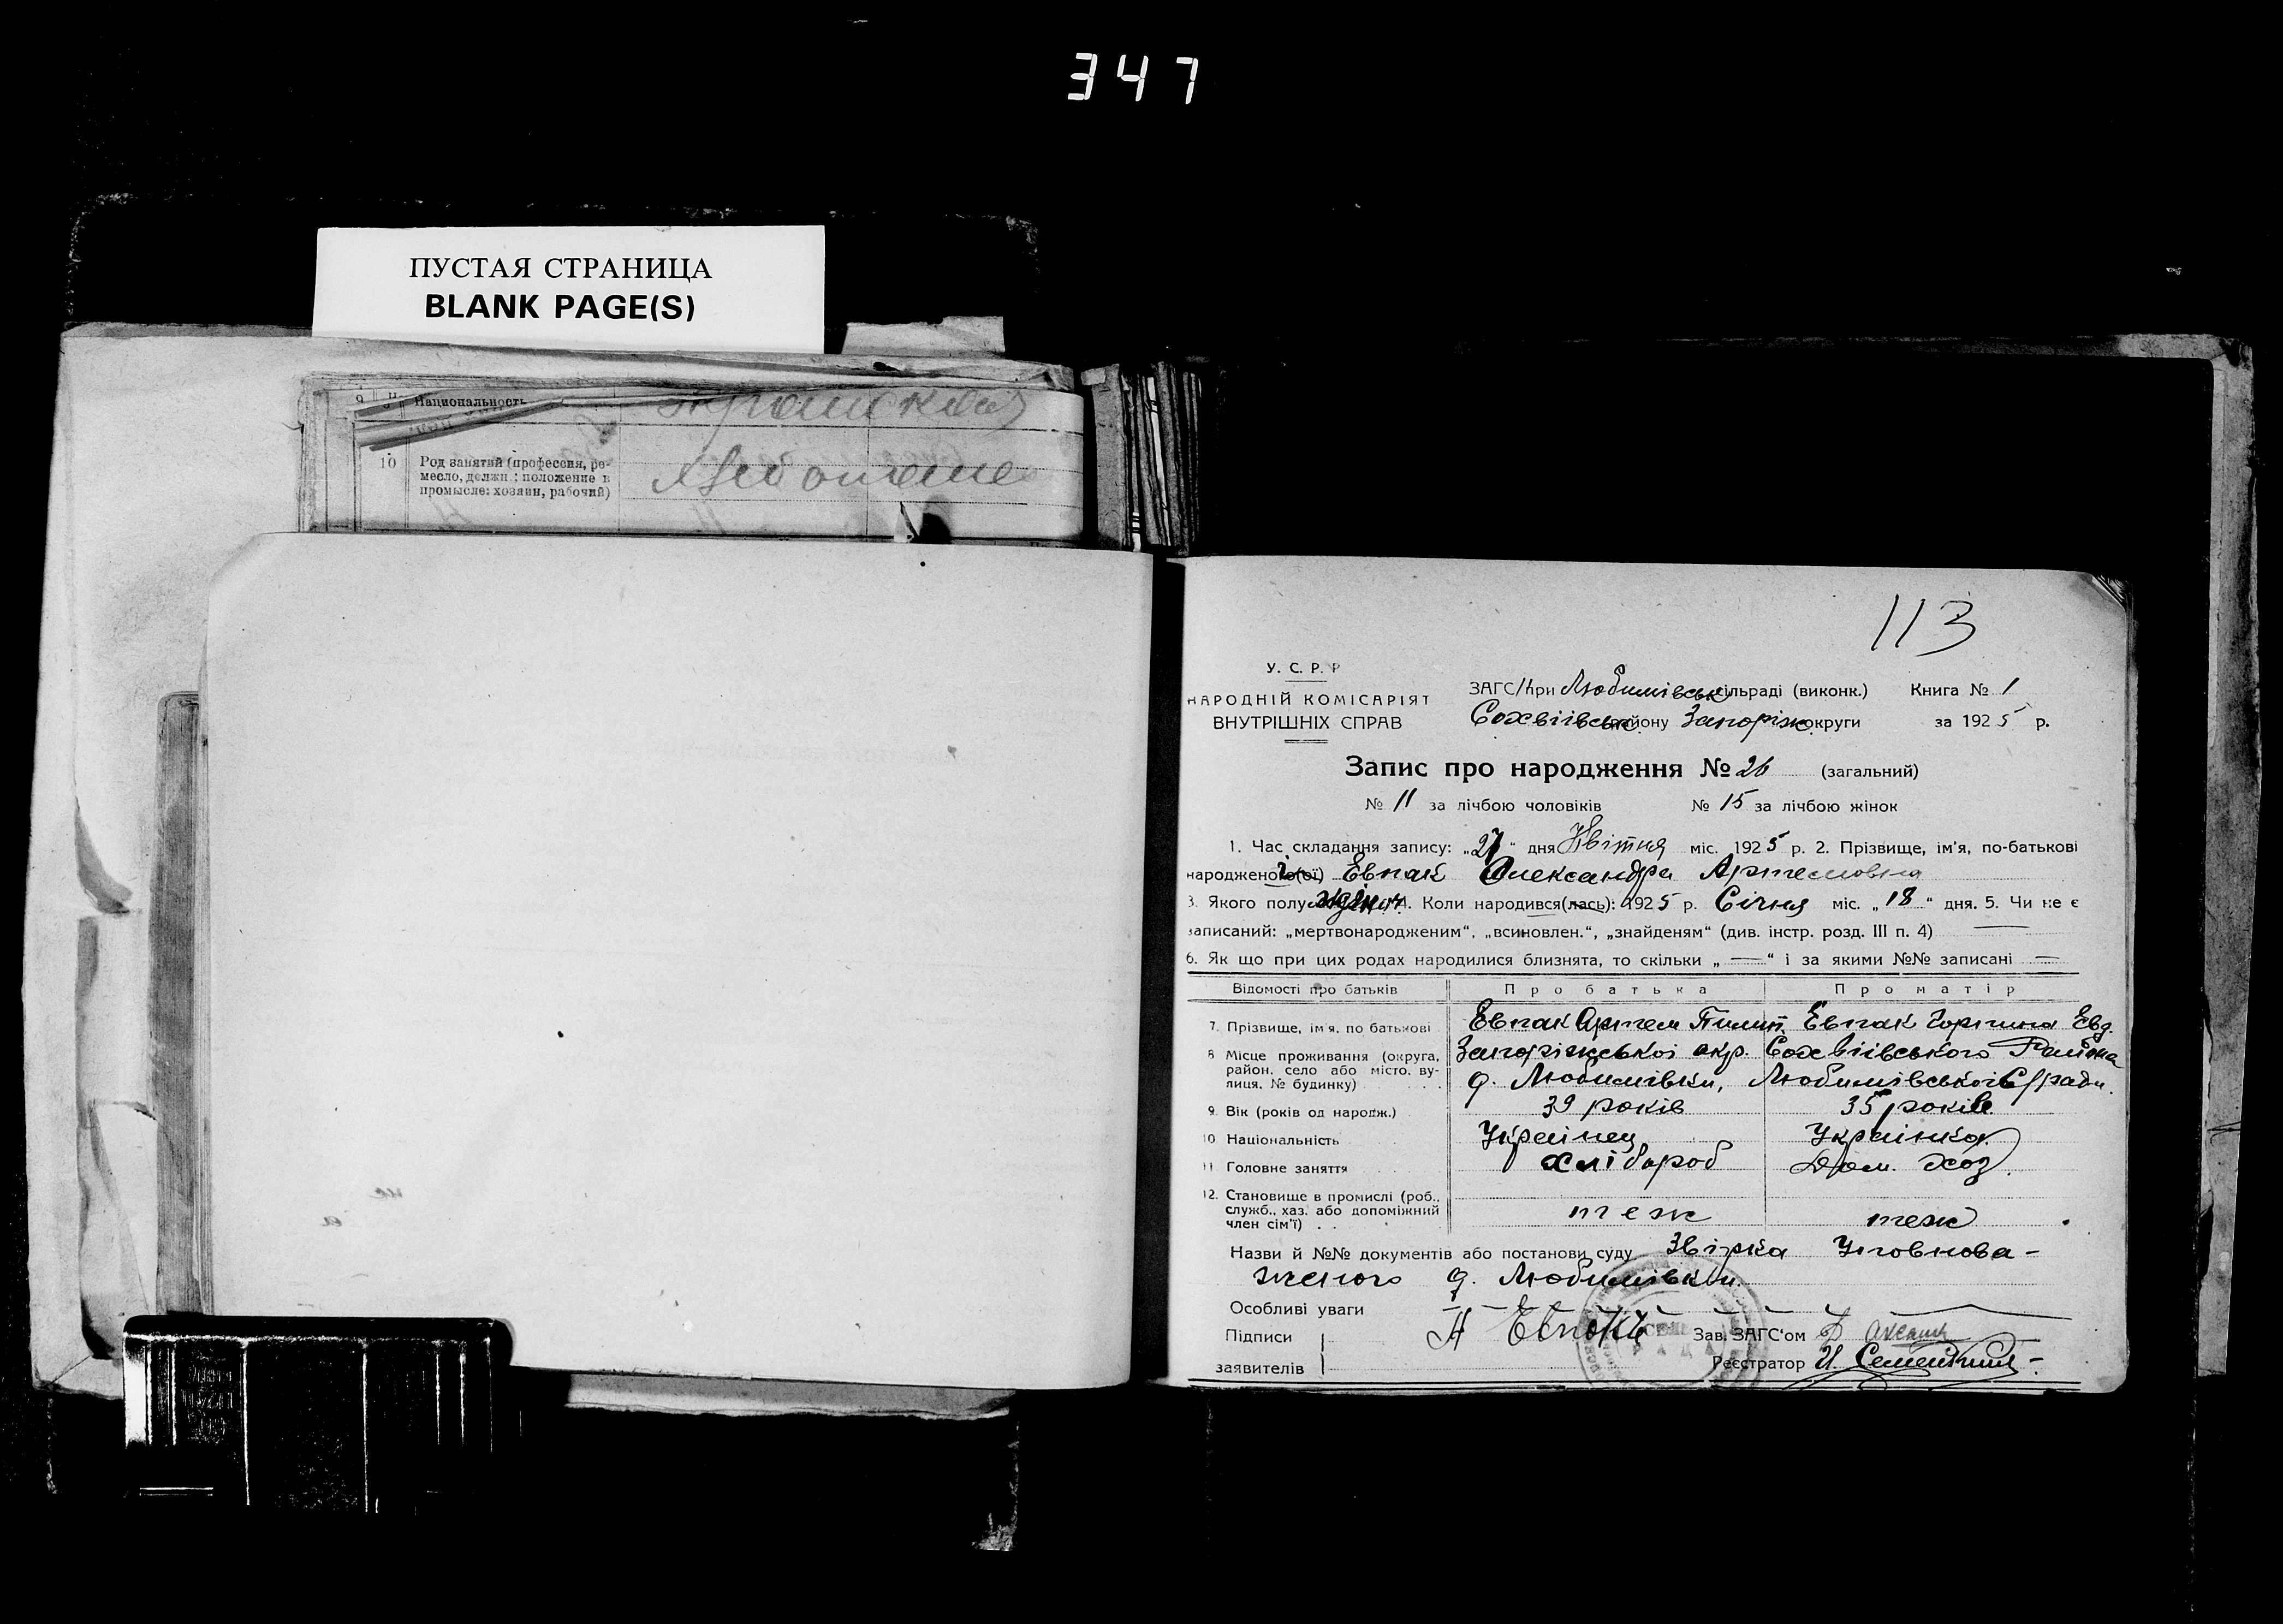 347
ПУСТАЯ СТРАНИЦА
BLANK PAGE(S)
Национальность
10 Род занятий (професcия, ре-
месло, должн.; положение в
промысле: хозяин, рабочий)
113
У. С. Р. Р
НАРОДНІЙ КОМІСАРІЯТ
ВНУТРІШНІХ СПРАВ
ЗАГС/при Любимівськ сільраді (виконк.) Книга № 1
Софіївськ. району Запоріж. округи за 1925 р.
Запис про народження № 26 (загальний)
№ 11 за лічбою чоловіків № 15 за лічбою жінок
1. Час складання запису: „27“ дня Квітня міс. 1925 р. 2. Прізвище, ім'я, по-батькові
народженого(ої) Евпак Олександра Артемовна
3. Якого полу жіноч. 4. Коли народився(лась): 1925 р. Січня міс. „18“ дня. 5. Чи не є
записаний: „мертвонародженим“, „всиновлен.“, „знайденям“ (див. інстр. розд. III п. 4) —
6. Як що при цих родах народилися близнята, то скільки „—“ і за якими №№ записані —
Відомості про батьків Про батька Про матір
7. Прізвище, ім'я, по батькові Евпак Артем Пилип. Евпак Горпина Евд.
8. Місце проживання (округа, Запоріжської окр. Сохвіівського Района
район, село або місто, ву-
лиця, № будинку) . . . д. Любимівки, Любимівської С/ради.
9. Вік (років од народж.) 39 років 35 років
10. Національність Українец Українка
11. Головне заняття хлібороб Дом. Хоз.
12. Становище в промислі (роб.,
служб., хаз. або допоміжний
член сім'ї) . . теж теж
Назви й №№ документів або постанови суду Звірка Уповнова-
женого д. Любимівки.
Особливі уваги
Підписи А Евпак Зав. ЗАГС'ом
заявителів Реєстратор И.
РАДА